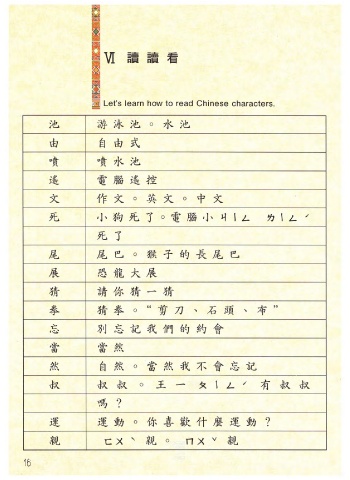 Ⅵ 讀讀看
Let's learn how to read Chinese characters.
池 游泳池。水池
由 自由式
噴 噴水池
遙 電腦遙控
文 作文。英文。中文
死 小狗死了。電腦小ㄐㄧㄥ ㄌㄧㄥˊ
死了
尾 尾巴。猴子的長尾巴
展 恐龍大展
猜 請你猜一猜
拳 猜拳。“剪刀、石頭、布”
忘 別忘記我們的約會
當 當然
然 自然。當然我不會忘記
叔 叔叔。王一ㄆㄧㄥˊ有叔叔
嗎？
運 運動。你喜歡什麼運動？
親 ㄈㄨˋ親。ㄇㄨˇ親
16